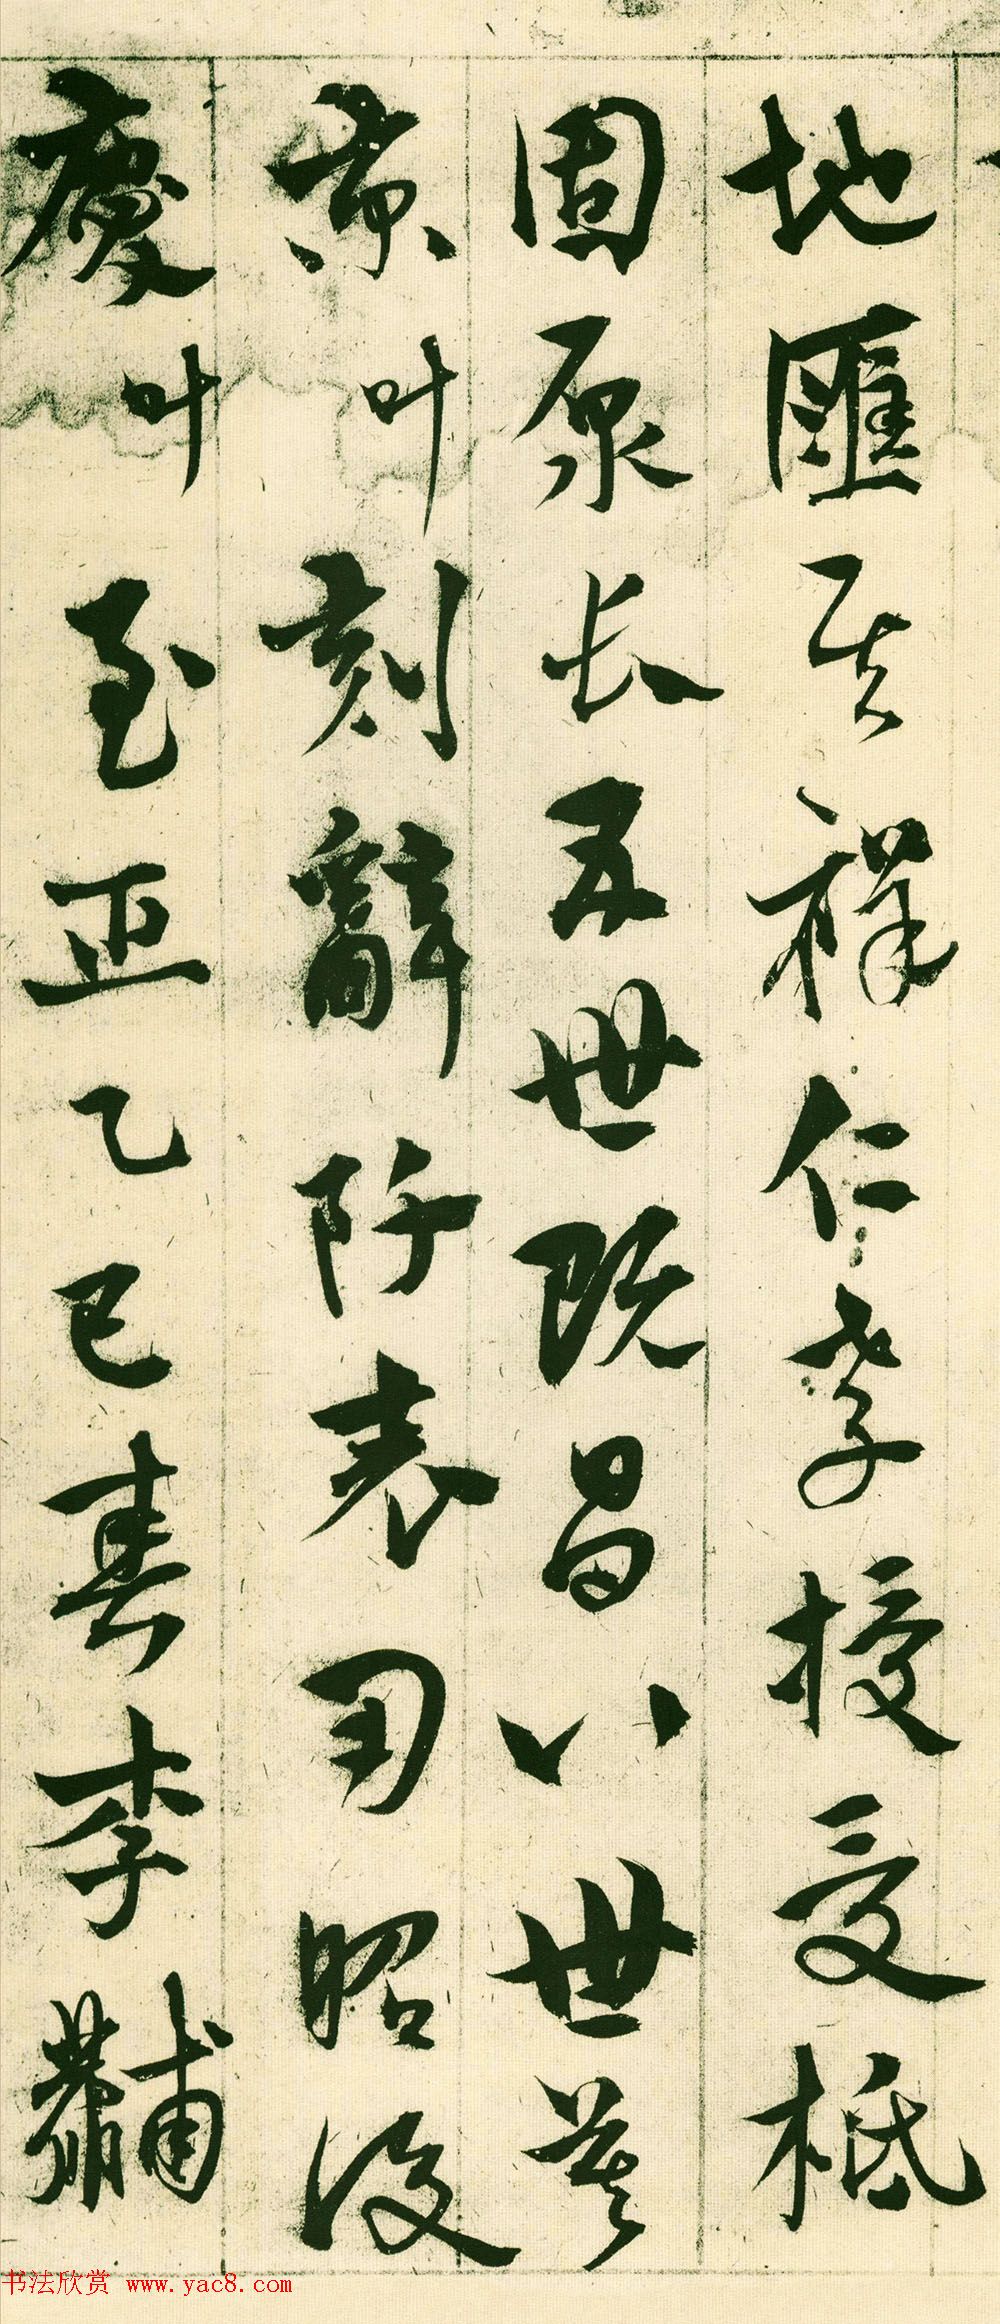 地匯其祥仁孝授受柢
固原长五世既昌八世莫
京叶刻辭阡表用昭後
慶叶至正乙巳春李黼
书法欣赏 www.yac8.com